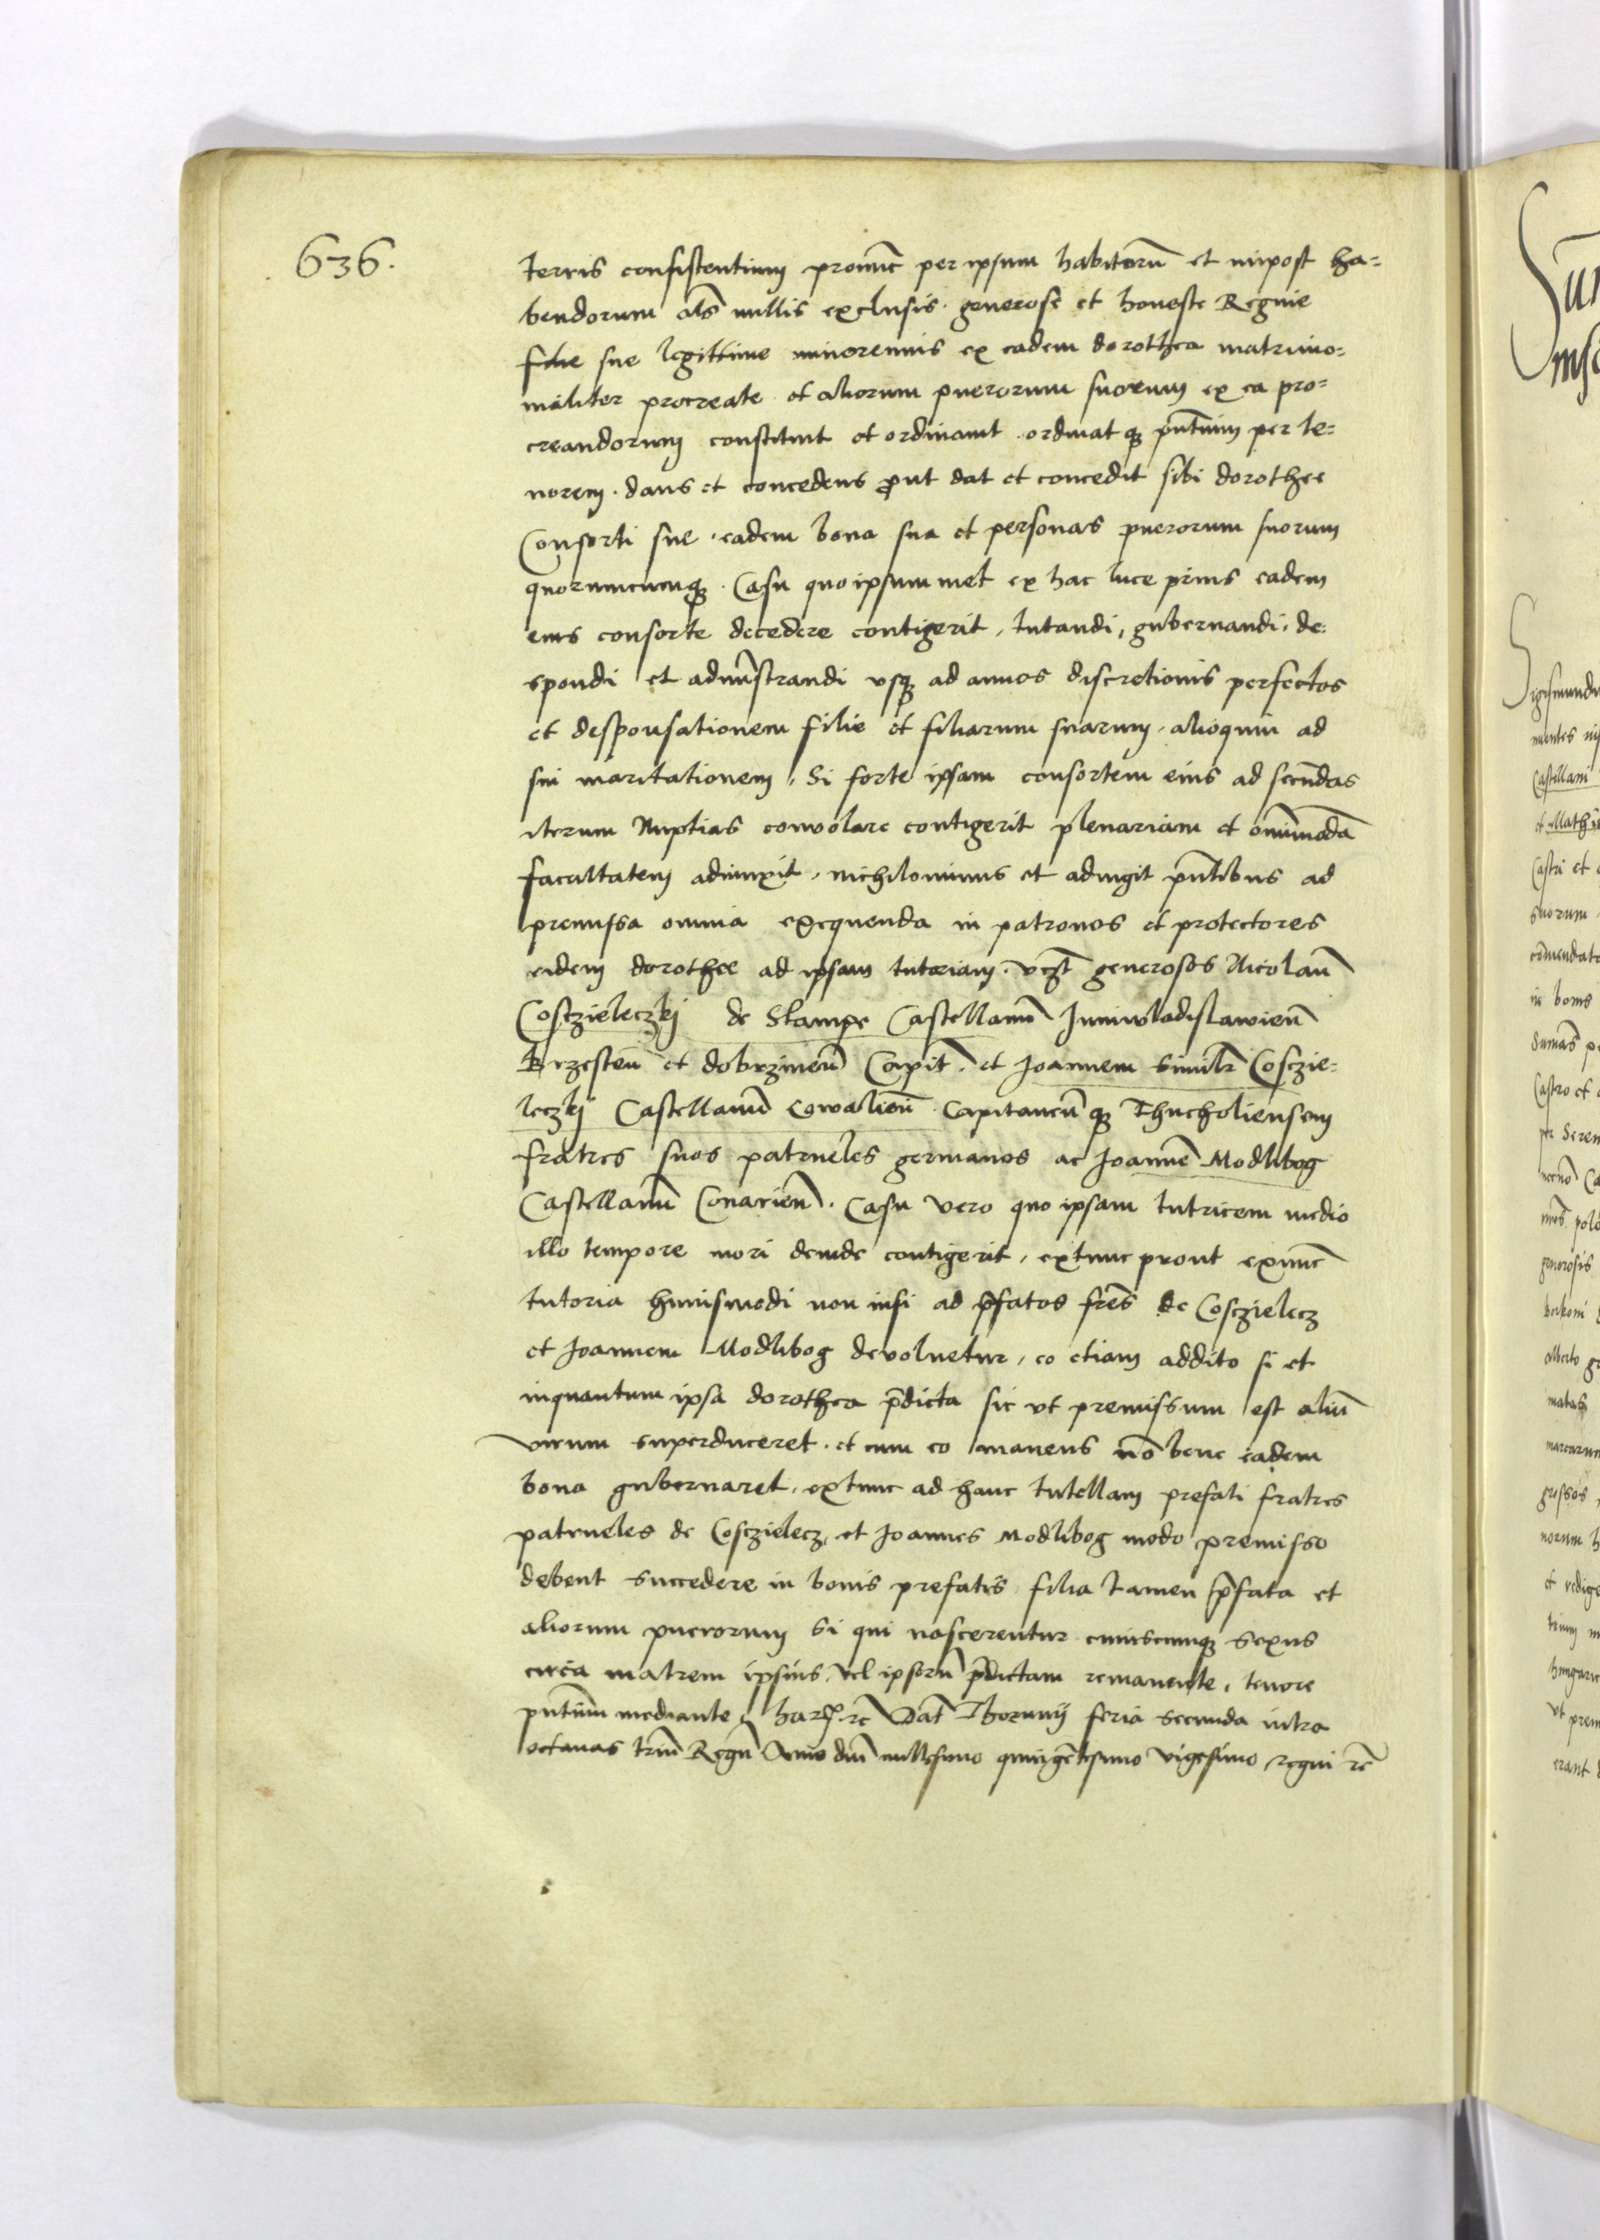 636.
terris consistentium pronuc̄ per ipsum habitorū et impost ha=
bendorum als̄ nullis exclusis. generose et honeste Regine
filie sue legittime minorennis ex eadem dorothea matrimo=
nialiter procreate et aliorum puerorum suorum ex ea pro=
creandorum constituit et ordinavit. ordinatqȝ pn̄tium per te=
norem. dans et concedens prout dat et concedit sibi dorothee
Consorti sue. eadem bona sua et personas puerorum suorum
quorumcumqȝ. Casu quo ipsummet ex hac luce prius eadem
eius consorte decedere contigerit, tutandi, gubernandi, de
spondi et admīstrandi usqȝ ad annos discretionis perfectos
et desponsationem filie et filiarum suarum, alioquin ad
sui maritationem, Si forte ipsam consortem eius ad secūdas
iterum Nuptias convolare contigerit plenariam et omnimodā
facultatem adiunxit, nichilominus et adiugit pn̄tibus ad
premissa omnia exequenda in patronos et protectores
eidem dorothee ad ipsam tutoriam. vcȝt generosos Nicolaū
Cosczieleczkj de Skampe Castellanū Juniwladislawien̄
Brzesten̄ et dobrzinen̄ Capit̄. et Joannem similr̄ Cosczie=
leczkj Castellanū Cowalien̄. Capitaneūqȝ Thucholiensem
fratres suos patrueles germanos ac Joannē Modlibog
Castellanū Conarien̄. Casu vero quo ipsam tutricem medio
illo tempore mori deinde contigerit, extunc prout exnūc
tutoria huiusmodi non nisi ad p̄fatos fr̄es de Cosczielecz
et Joannem Modlibog devoluetur, eo etiam addito si et
inquantum ipsa dorothea p̄dicta sic ut premissum est aliū
virum superduceret. et cum eo manens nō bene eadem
bona gubernaret, extunc ad hanc tutellam prefati fratres
patrueles de Cosczielecz, et Joannes Modlibog modo premisso
debent succedere in bonis prefatis filia tamen p̄fata et
aliorum puerorum si qui nascerentur cuiuscumqȝ sexus
circa matrem ipsius, vel ipsorū p̄dictam remanente, tenore
pn̄tium mediante, har̄ rc̄ Dat̄ Thorunij feria secunda intra
octavas triū Regū Anno dn̄i millesimo quingētesimo vigesimo, regni rc̄